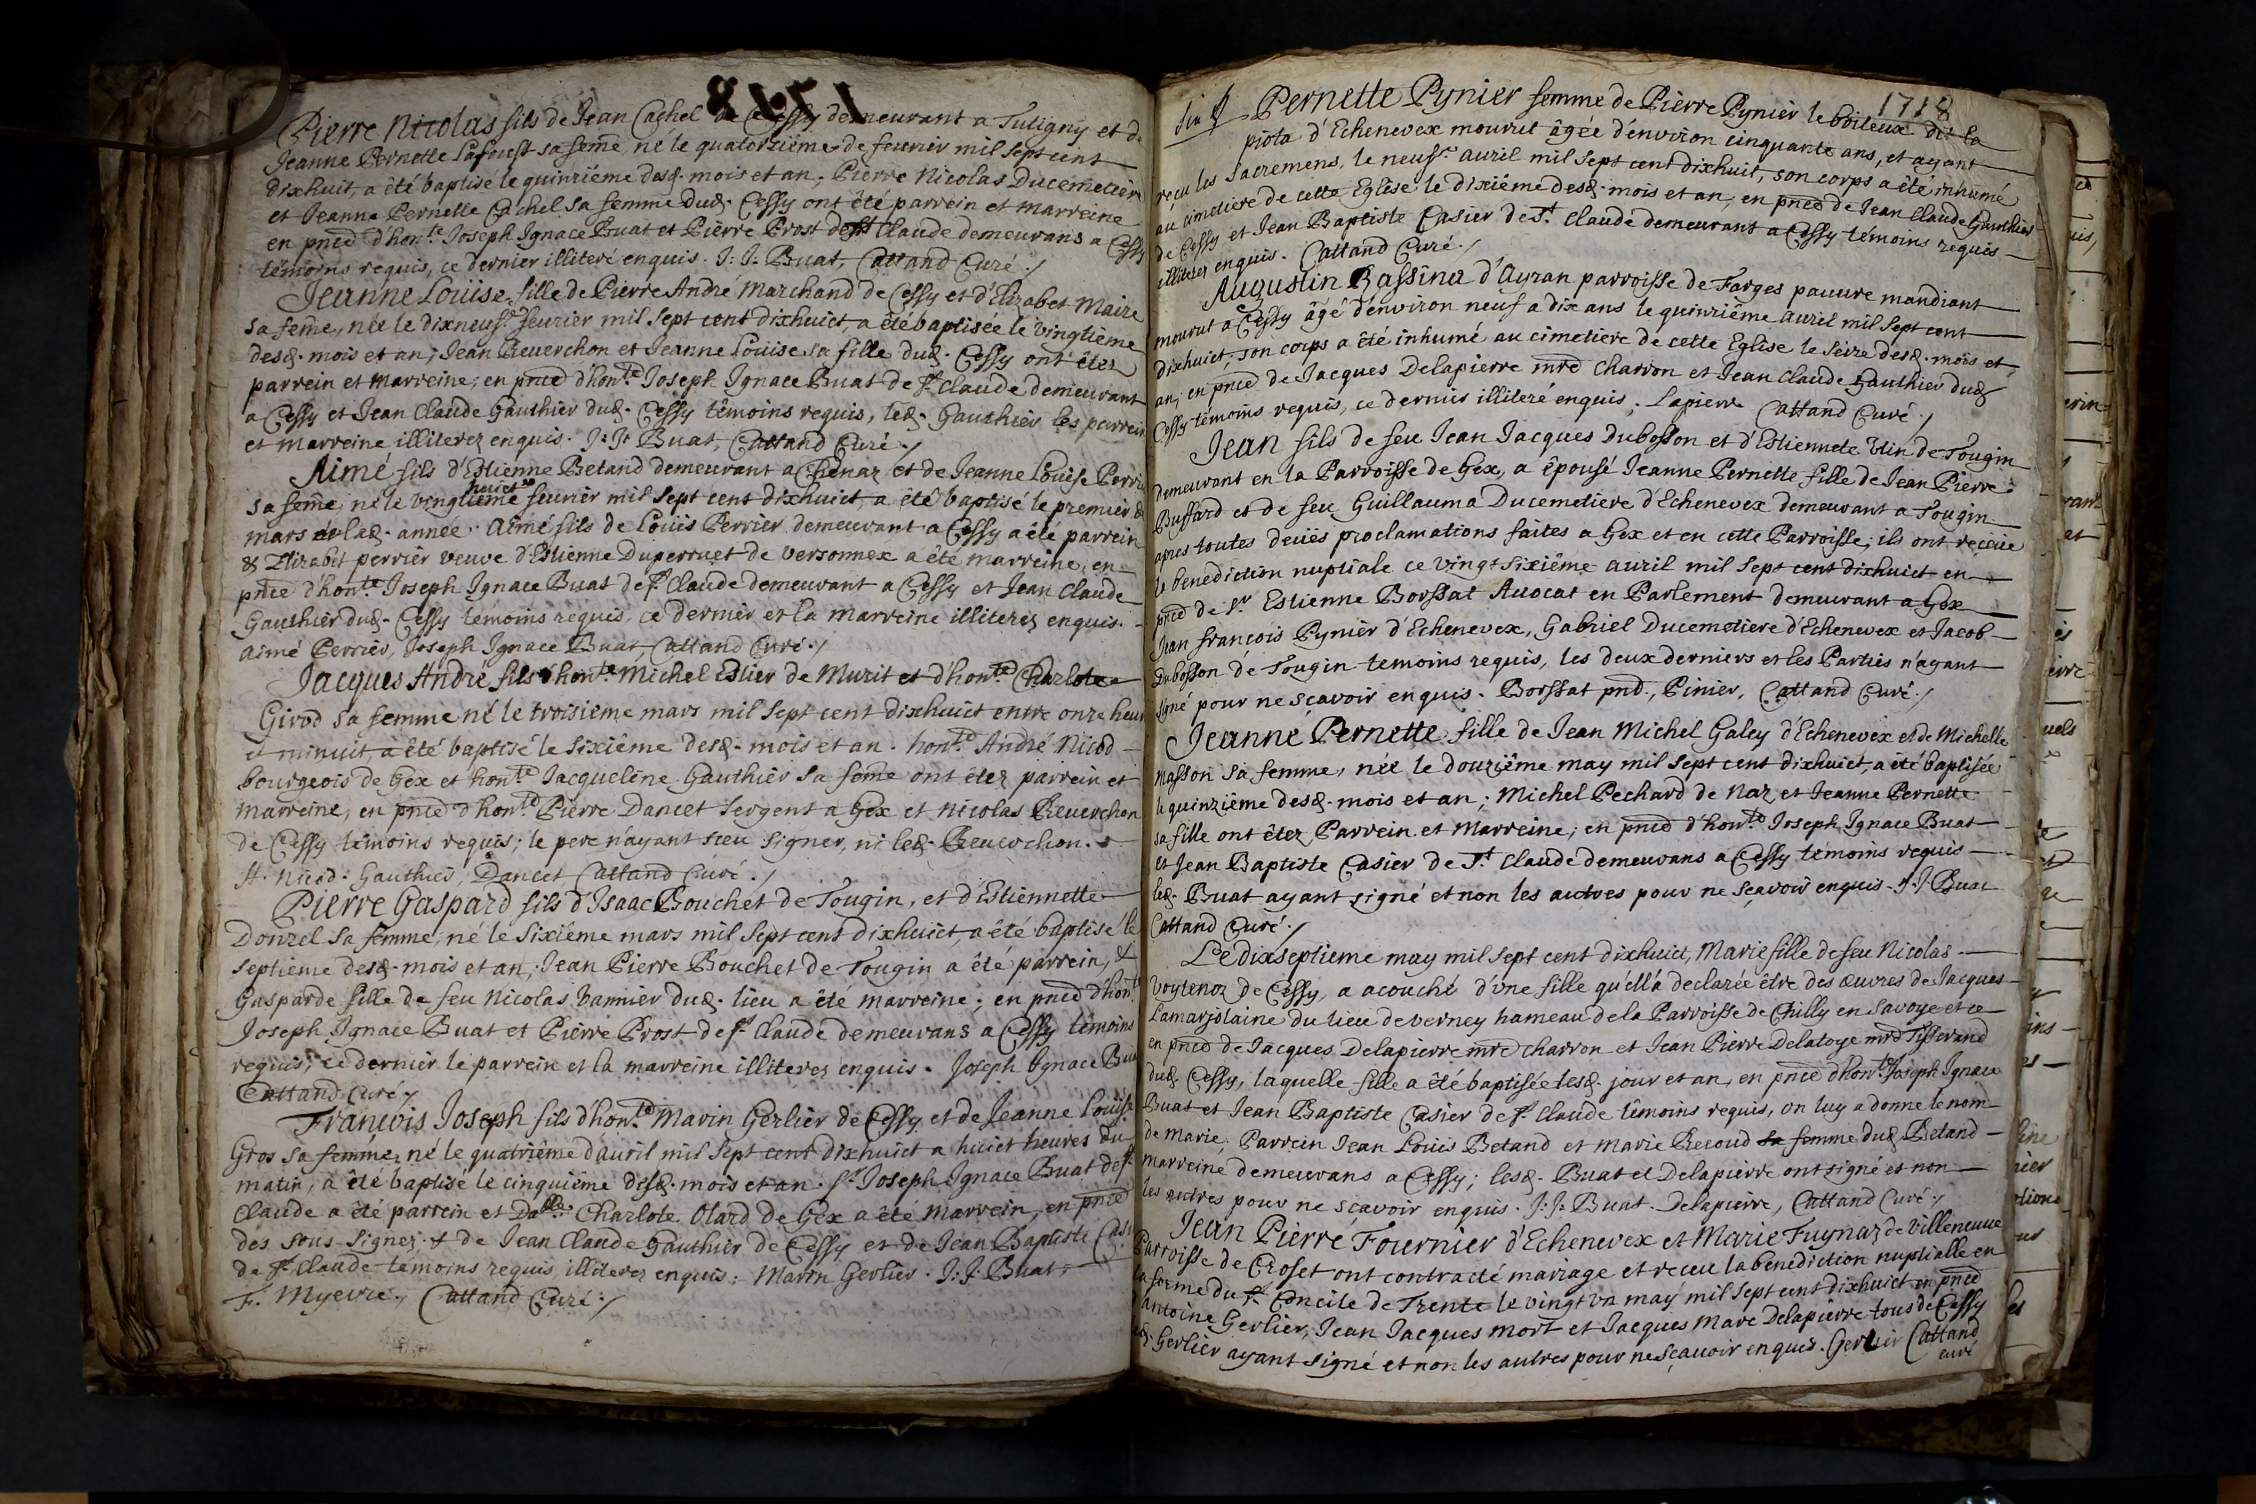 1718
Pierre Nicolas fils de Jean Cachel de Cessy demeurant a Tutigny et de
Jeanne Pernette Lafouest sa feme né le quatorziéme de feurier mil sept cent
dixhuit, a êté baptisé le quinziéme desd. mois et an; Pierre Nicolas Ducemetiere
et Jeanne Pernette Cachel sa femme dud. Cessy ont êté parrein et marreine
en pnce d'hon.te Joseph Ignace Buat et Pierre Prost de st Claude demeurans a Cessy
témoins requis, ce dernier illiteré enquis. J: J. Buat, Cattand Curé ./
Jeanne Loüise, fille de Pierre André Marchand de Cessy et d'Elizabet Maire
sa feme, née le dixneuf.e feurier mil sept cent dixhuict, a êté baptisée le vingtième
desd. mois et an; Jean Reuerchon et Jeanne Loüise sa fille dud. Cessy ont êtez
parrein et marreine; en pnce d'hon.te Joseph Ignace Buat de st Claude demeurant
a Cessy et Jean Claude Gauthier dud. Cessy têmoins requis, led. Gauthier les parrein
et marreine illiterez enquis. J: J: Buat, Cattand Curé ./
Aimé fils d'Estienne Betand demeurant a Chenaz et de Jeanne Loüise Perrie
sa feme, né le vingt huict.e feurier mil sept cent dixhuict, a êté baptisé le premier de
mars de lad. année. Aimé fils de Loüis Perrier demeurant a Cessy a êté parrein
& Elizabet perrier veuve d'Estienne Duperruet de versonnex a êté marreine, en
pnce d'hon.te Joseph Ignace Buat de st Claude demeurant a Cessy et Jean Claude
Gauthier dud. Cessy temoins requis, ce dernier et la marreine illiterez enquis.
Aimé Perrier, Joseph Ignace Buat, Cattand Curé ./
Jacques André fils d'hon.te Michel Estier de Murit et d'hon.te Charlote
Girod sa femme né le troisieme mars mil sept cent dixhuict entre onze heur
et minuit, a êté baptisé le sixiême desd. mois et an. hon.te André Nicod
bourgeois de Gex et hon.te Jacqueléne Gauthier sa feme ont êtez parrein et
marreine, en pnce d'hon.te Pierre Dancet sergent a Gex et Nicolas Reuerchon
de Cessy témoins requis; le pere n'ayant sceu signer, ni led. Reuerchon.
A. Nicod. Gauthier, Dancet Cattand Curé ./
Pierre Gaspard fils d'Isaac Bouchet de Tougin, et d'Estiennette
Donzel sa femme, né le sixiéme mars mil sept cent dixhuict, a êté baptisé le
septieme desd. mois et an; Jean Pierre Bouchet de Tougin a êté parrein, &
Gasparde fille de feu Nicolas Vannier dud. lieu a êté marreine; en pnce d'hon.te
Joseph Ignace Buat et Pierre Prost de st Claude demeurans a Cessy têmoins
requis, ce dernier le parrein et la marreine illiterez enquis. Joseph Ignace Bua
Cattand Curé ./
François Joseph fils d'hon.te Marin Gerlier de Cessy et de Jeanne Loüise
Gros sa femme, né le quatriême d'auril mil sept cent dixhuict a huict heures du
matin, a êté baptisé le cinquiéme desd. mois et an. sr. Joseph Ignace Buat de st
Claude a êté parrein et Dalle Charlote Olard de Gex a êté marrein, en pnce
des sous-signez & de Jean Claude Gauthier de Cessy et de Jean Baptiste Casi
de st Claude temoins requis illiterez enquis: Marin Gerlier. J: J. Buat,
F. Myevre. Cattand Curé ./
1718
Pernette Pynier femme de Pierre Pynier le boiteux dit la
piota d'Echenevex mourut âgée d'environ cinquante ans, et ayant
reçu les sacremens, le neuf.e auril mil sept cent dixhuit, son corps a êté inhumé
au cimetiere de cette Eglise le dixiéme desd. mois et an, en pnce de Jean Claude Gauthier
de Cessy et Jean Baptiste Casier de St Claude demeurant a Cessy témoins requis
illiterez enquis. Cattand Curé ./
Augustin Bassina d'Ayran parroisse de Farges pauure mandiant
mourut a Cessy âgé d'environ neuf a dix ans le quinziême auril mil sept cent
dixhuict, son corps a êté inhumé au cimetiere de cette Eglise le seize desd. mois et
an, en pnce de Jacques Delapierre mre Charron et Jean Claude Gauthier dud
Cessy témoins requis, ce dernier illiteré enquis. Lapierre Cattand Curé ./
Jean fils de feu Jean Jacques Dubosson et d'Estiennete Vtin de Tougin
demeurant en la Parroisse de Gex, a épousé Jeanne Pernette fille de Jean Pierre
Buffard et de feu Guillauma Ducemetiere d'Echenevex demeurant a Tougin
apres toutes deuës proclamations faites a Gex et en cette Parroisse, ils ont reçeue
la benediction nuptiale ce vingt sixiême auril mil sept cent dixhuict en
pnce de sr Estienne Borssat Auocat en Parlement demeurant a Gex
Jean François Pynier d'Echenevex, Gabriel Ducemetiere d'Echenevex et Jacob
Dubosson de Tougin temoins requis, les deux derniers et les Parties n'ayant
signé pour ne sçavoir enquis. Borssat pnd., Pinier, Cattand Curé ./
Jeanne Pernette fille de Jean Michel Galey d'Echenevex et de Michelle
Masson sa femme, née le douziême may mil sept cent dixhuict, a êté baptisée
le quinziéme desd. mois et an; Michel Pechard de Naz et Jeanne Pernette
sa fille ont êtez Parrein et Marreine; en pnce d'hon.te Joseph Ignace Buat
et Jean Baptiste Casier de St Claude demeurans a Cessy temoins requis
led. Buat ayant signé et non les autres pour ne sçavoir enquis. J. J Buat
Cattand Curé ./
Le dixseptieme may mil sept cent dixhuict, Marie fille de feu Nicolas
Voytenoz de Cessy, a acouché d'une fille qu'ell'a declarée être des œuvres de Jacques
Lamarjolaine du lieu de verney hameau de la Parroisse de Chilly en Savoye et ce
en pnce de Jacques Delapierre mre charron et Jean Pierre Delatoye mre Tisserand
dud. Cessy, laquelle fille a êté baptisée lesd. jour et an, en pnce d'hon.te Joseph Ignace
Buat et Jean Baptiste Casier de st Claude têmoins requis, on luy a donné le nom
de Marie, Parrein Jean Loüis Betand et Marie Reroud sa femme dud. Betand
Marreine demeurans a Cessy; lesd. Buat et Delapierre ont signé et non
les autres pour ne sçavoir enquis. J: J: Buat. Delapierre, Cattand Curé ./
Jean Pierre Fournier d'Echenevex et Marie Fuynaz de Villeneuue
Parroisse de Croset ont contracté mariage et receu la benediction nuptialle en
la forme du st Concile de Trente le vingt un may mil sept cent dixhuict en pnce
d'antoine Gerlier, Jean Jacques Mort et Jacques Marc Delapierre tous de Cessy
led. Gerlier ayant signé et non les autres pour ne sçauoir enquis. Gerlier Cattand
curé